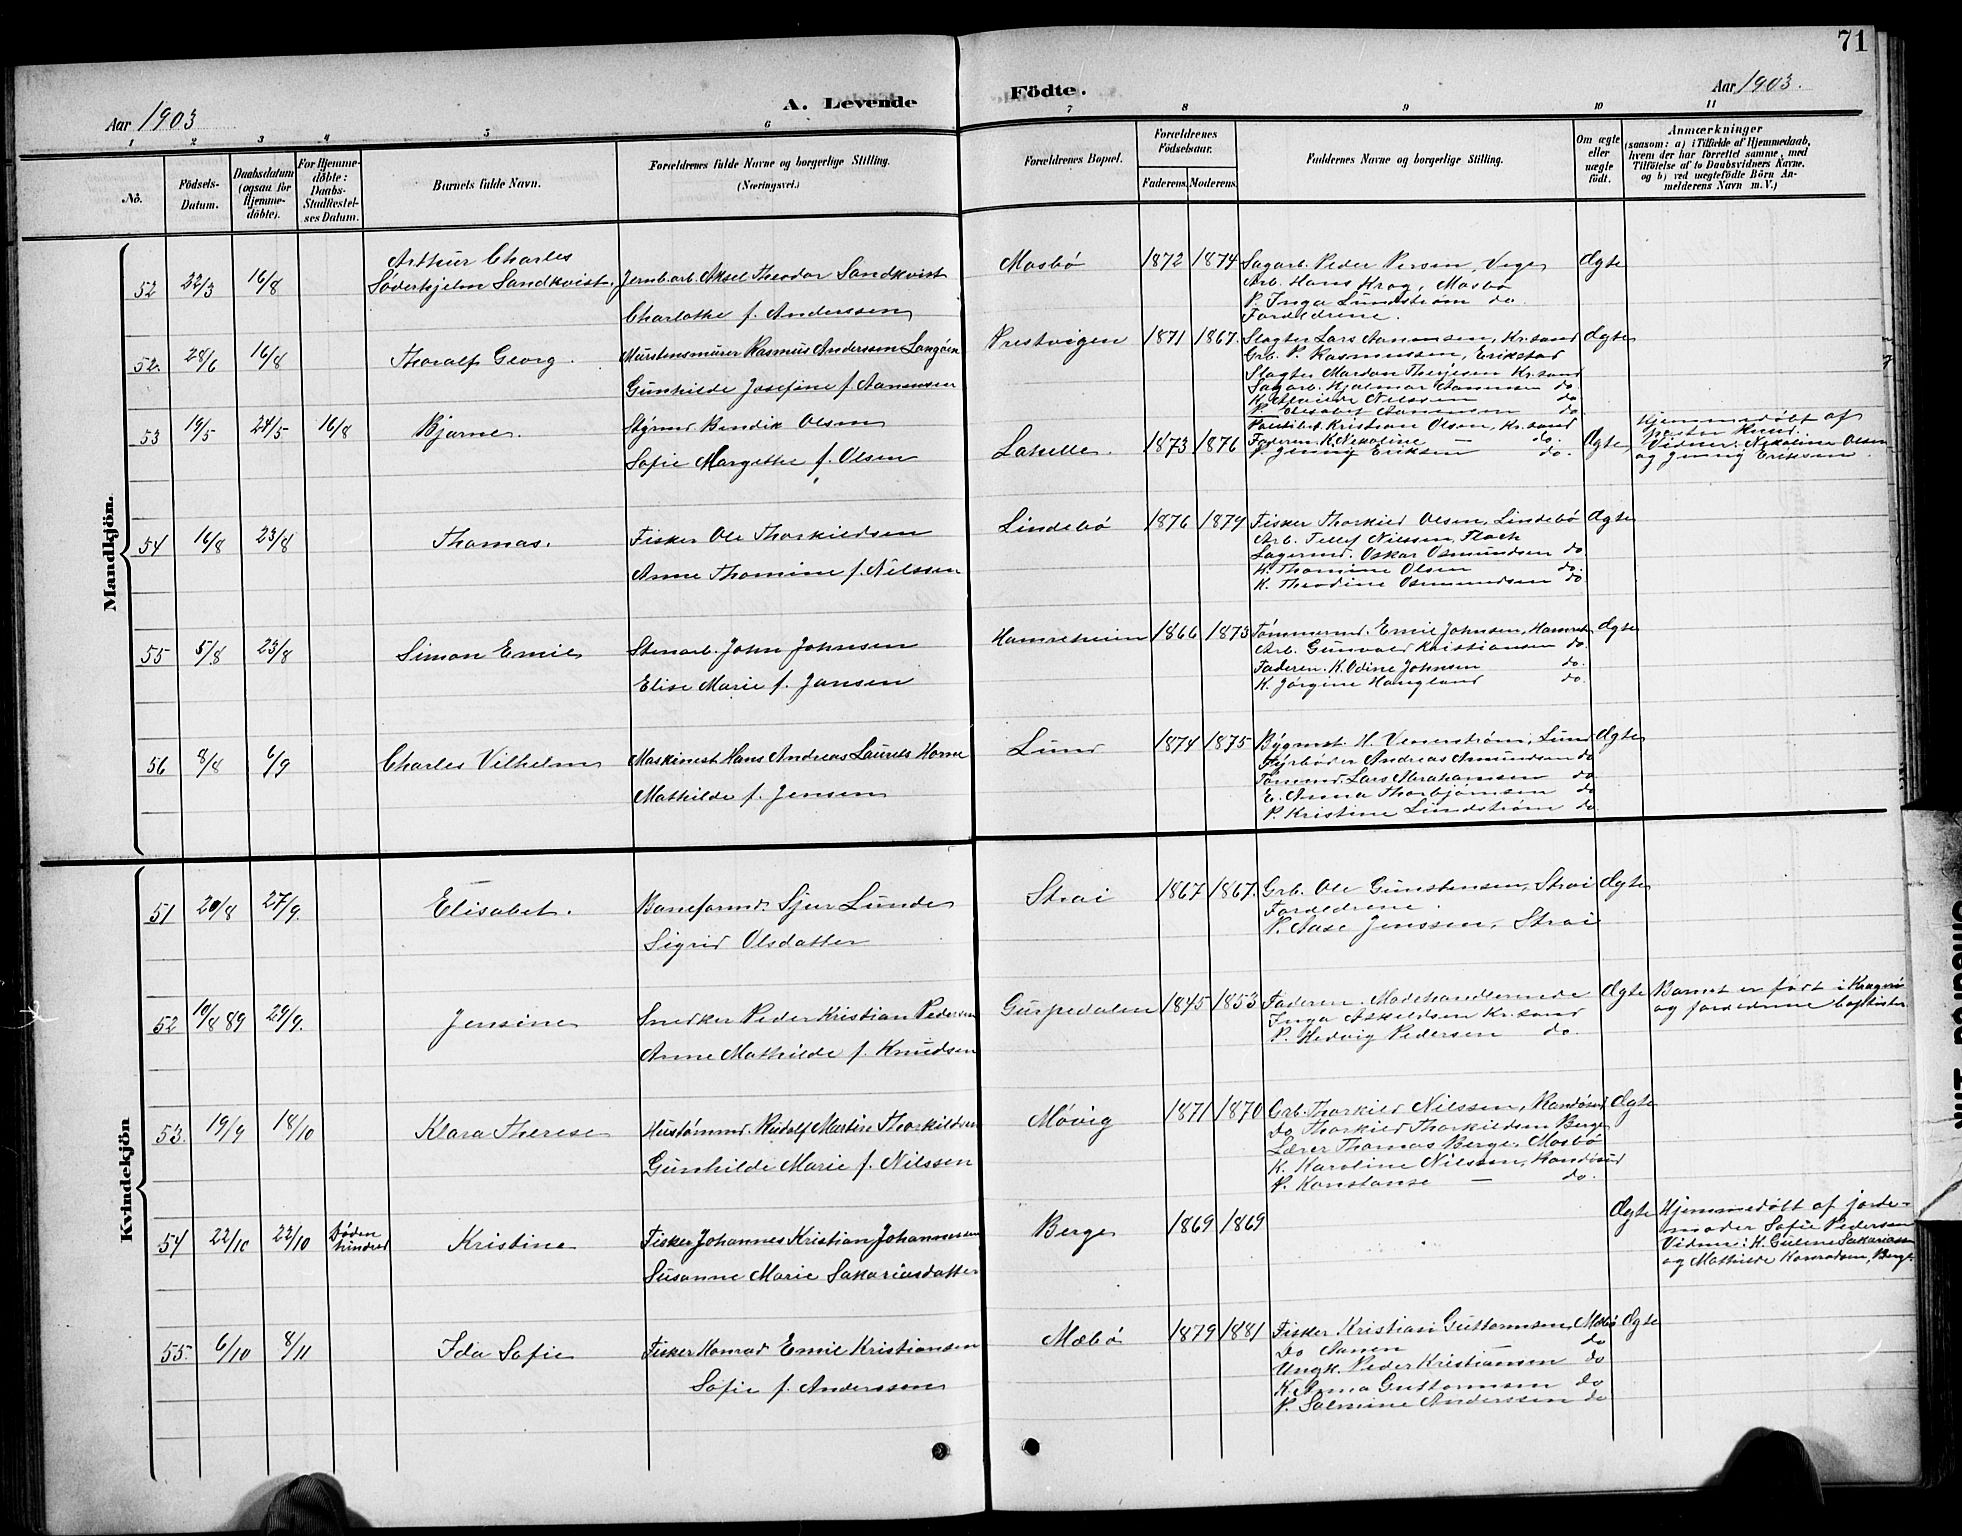 71
Aar 1903
A. Levende
Födte.
Aar 1903.
1 2 3 4 5 6 7 8 9 10 11
No.
Födsels-
Datum.
Daabsdatum
(ogsaa for
Hjemme-
döbte).
For Hjemme-
döbte:
Daabs-
Stadfæstel-
ses Datum.
Barnets fulde Navn.
Forældrenes fulde Navne og borgerlige Stilling.
(Næringsvei.)
Forældrenes Bopæl.
Forældrenes
Födselsaar.
Faderens. Moderens.
Faddernes Navne og borgerlige Stilling.
Om ægte
eller
uægte
født.
Anmærkninger
(saasom: a) i Tilfælde af Hjemmedaab,
hvem der har forrettet samme, med
Tilföielse af to Daabsvidners Navne,
og b) ved uægtefödte Börn An-
melderens Navn m. V.)
Mandkjön.
52 22/3 16/8 Arthur Charles
Søderhjelm Sandkvist. Jernb.arb. Aksel Theodor Sandkvist
Charlotte f. Anderssen
Mosbø 1872 1874 Sagarb. Peder Persen, Vege Ægte
Arb. Hans Krag, Mosbø
P. Inga Lundstrøm do.
Forældrene.
52. 28/6 16/8 Thoralf Georg. Murstensmurer Rasmus Anderssen Langøen
Gunhilde Josefine f. Aanensen
Prestvigen 1871 1867. Slagter Lars Aanonsen, Kr.sand Ægte
Grb. P. Rasmussen, Erikstad
Slagter Mardon Therjesen Kr.sand
Sagarb. Hjalmar Aanensen do
K. Nilssen do
P. Elisabet Aanensen do.
53 19/5 24/5 16/8 Bjarne. Styrmd Bendik Olsen
Sofie Margethe f. Olsen
Lahelle. 1873 1876 Kristian Olsen, Kr.sand Ægte
Faderen. K. Nikoline — do.
P. Jenny Eriksen do.
Hjemmedøbt af
pastor Knud.
Vidner: Nikoline Olsen
og Jenny Eriksen.
54 16/8 23/8 Thomas. Fisker Ole Thorkildsen
Anne Thomine f. Nilssen
Lindebø 1876 1879 Fisker Thorkild Olsen, Lindebø Ægte
Arb. Tellef Nilssen, Flach
Lagermd. Oskar Osmundsen do.
K. Thomine Olsen do.
K. Theodine Osmundsen do
55 5/8 23/8 Simon Emil Stenarb. John Johnsen
Elise Marie f. Jansen
Hamreheien 1866 1873 Tømmermd. Emil Johnsen, Hamreh. Ægte
Arb. Gunvald Kristiansen do.
Faderen. K. Odine Johnsen do.
K. Jørgine Haugland do.
56 8/8 6/9 Charles Vilhelm Maskinest Hans Andreas Laurets Horne
Mathilde f. Jensen
Lund 1874 1875 Bygmst. H. Venerstrøm, Lund Ægte
Fyrbøder Andreas Amundsen do
Tømmd. Lars Abrahamsen do
E. Anna Thorbjørnsen do
P. Kristine Lundstrøm do
Kvindekjön
51 20/8 27/9. Elisabet. Baneformd. Sjur Lunde
Sigrid Olsdatter
Strai 1867 1867. Grb. Ole Gunstensen, Strai Ægte
Forældrene.
P. Aase Jenssen, Strai
52 10/8 89 29/9. Jensine Snedker Peder Kristian Pedersen
Anne Mathilde f. Knudsen
Guspedalen 1845 1853 Faderen. Modehandlerinde Ægte
Inga Askildsen Kr.sand
P. Hedvig Pedersen do.
Barnet er født i
og forældrene baptister
53. 19/9 18/10 Klara Therese Hustømmd. Rudolf Martin Thorkildsen
Gunhilde Marie f. Nilssen
Møvig 1871 1870 Grb. Thorkild Nilssen, Randøsund Ægte
Do Thorkild Thorkildsen Berge
Lærer Thomas Berge, Mosbø
K. Karoline Nilssen, Randøsund
P. Konstanse — do.
54 22/10 22/10 Døden
hindred Kristine Fisker Johannes Kristian Johannessen
Susanne Marie Sakariasdatter
Berge 1869 1869 Ægte Hjemmedøbt af jorde-
moder Sofie Pedersen
Vidner: K. Guline Sakariassen
og Mathilde Konradsen, Berge.
55. 6/10 8/11 Ida Sofie Fisker Konrad Emil Kristiansen
Sofie f. Anderssen
Mæbø 1879 1881 Fisker Kristian Guttormsen, Mæbø Ægte
Do Aanen do
Ungk. Peder Kristiansen do
K. Anna Guttormsen do
P. Salmine Anderssen do